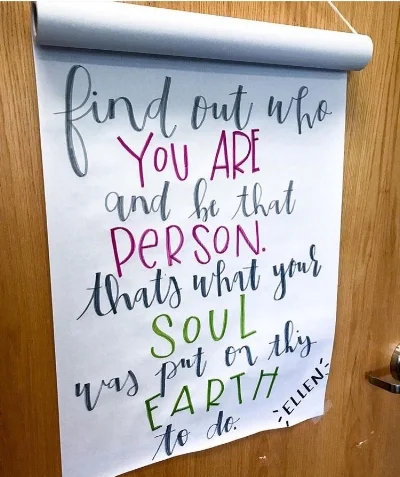 find out who
YOU ARE
and be that
PERSON.
thats what your
SOUL
was put on this
EARTH
to do.
ELLEN